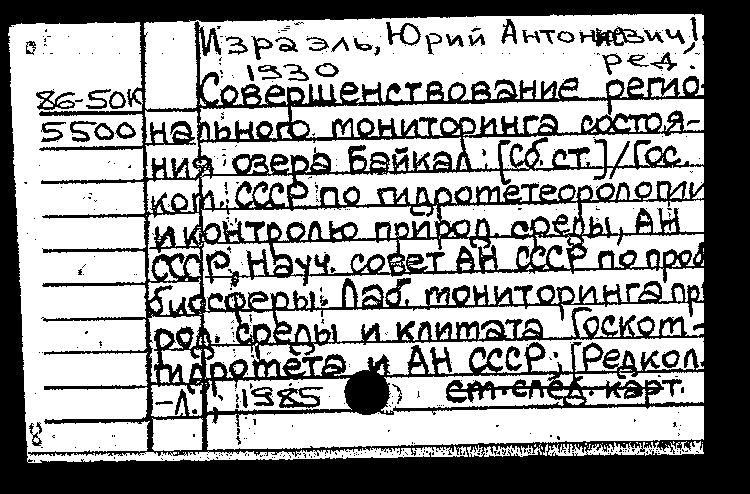 Израэль, Юрий Антониевич,
1930 ред.
86-50К Совершенствование регио-
5500 нального мониторинга состоя-
ния озера Байкал: [Сб.ст.]/Гос.
ком. СССР по гидрометеорологии
и контролю природ. среды, АН
СССР, Науч. совет АН СССР по проб
биосферы. Лаб. мониторинга пр
род. среды и климата Госком-
гидромета и АН СССР; [Редкол.
-Л., 1985 см.след. карт.